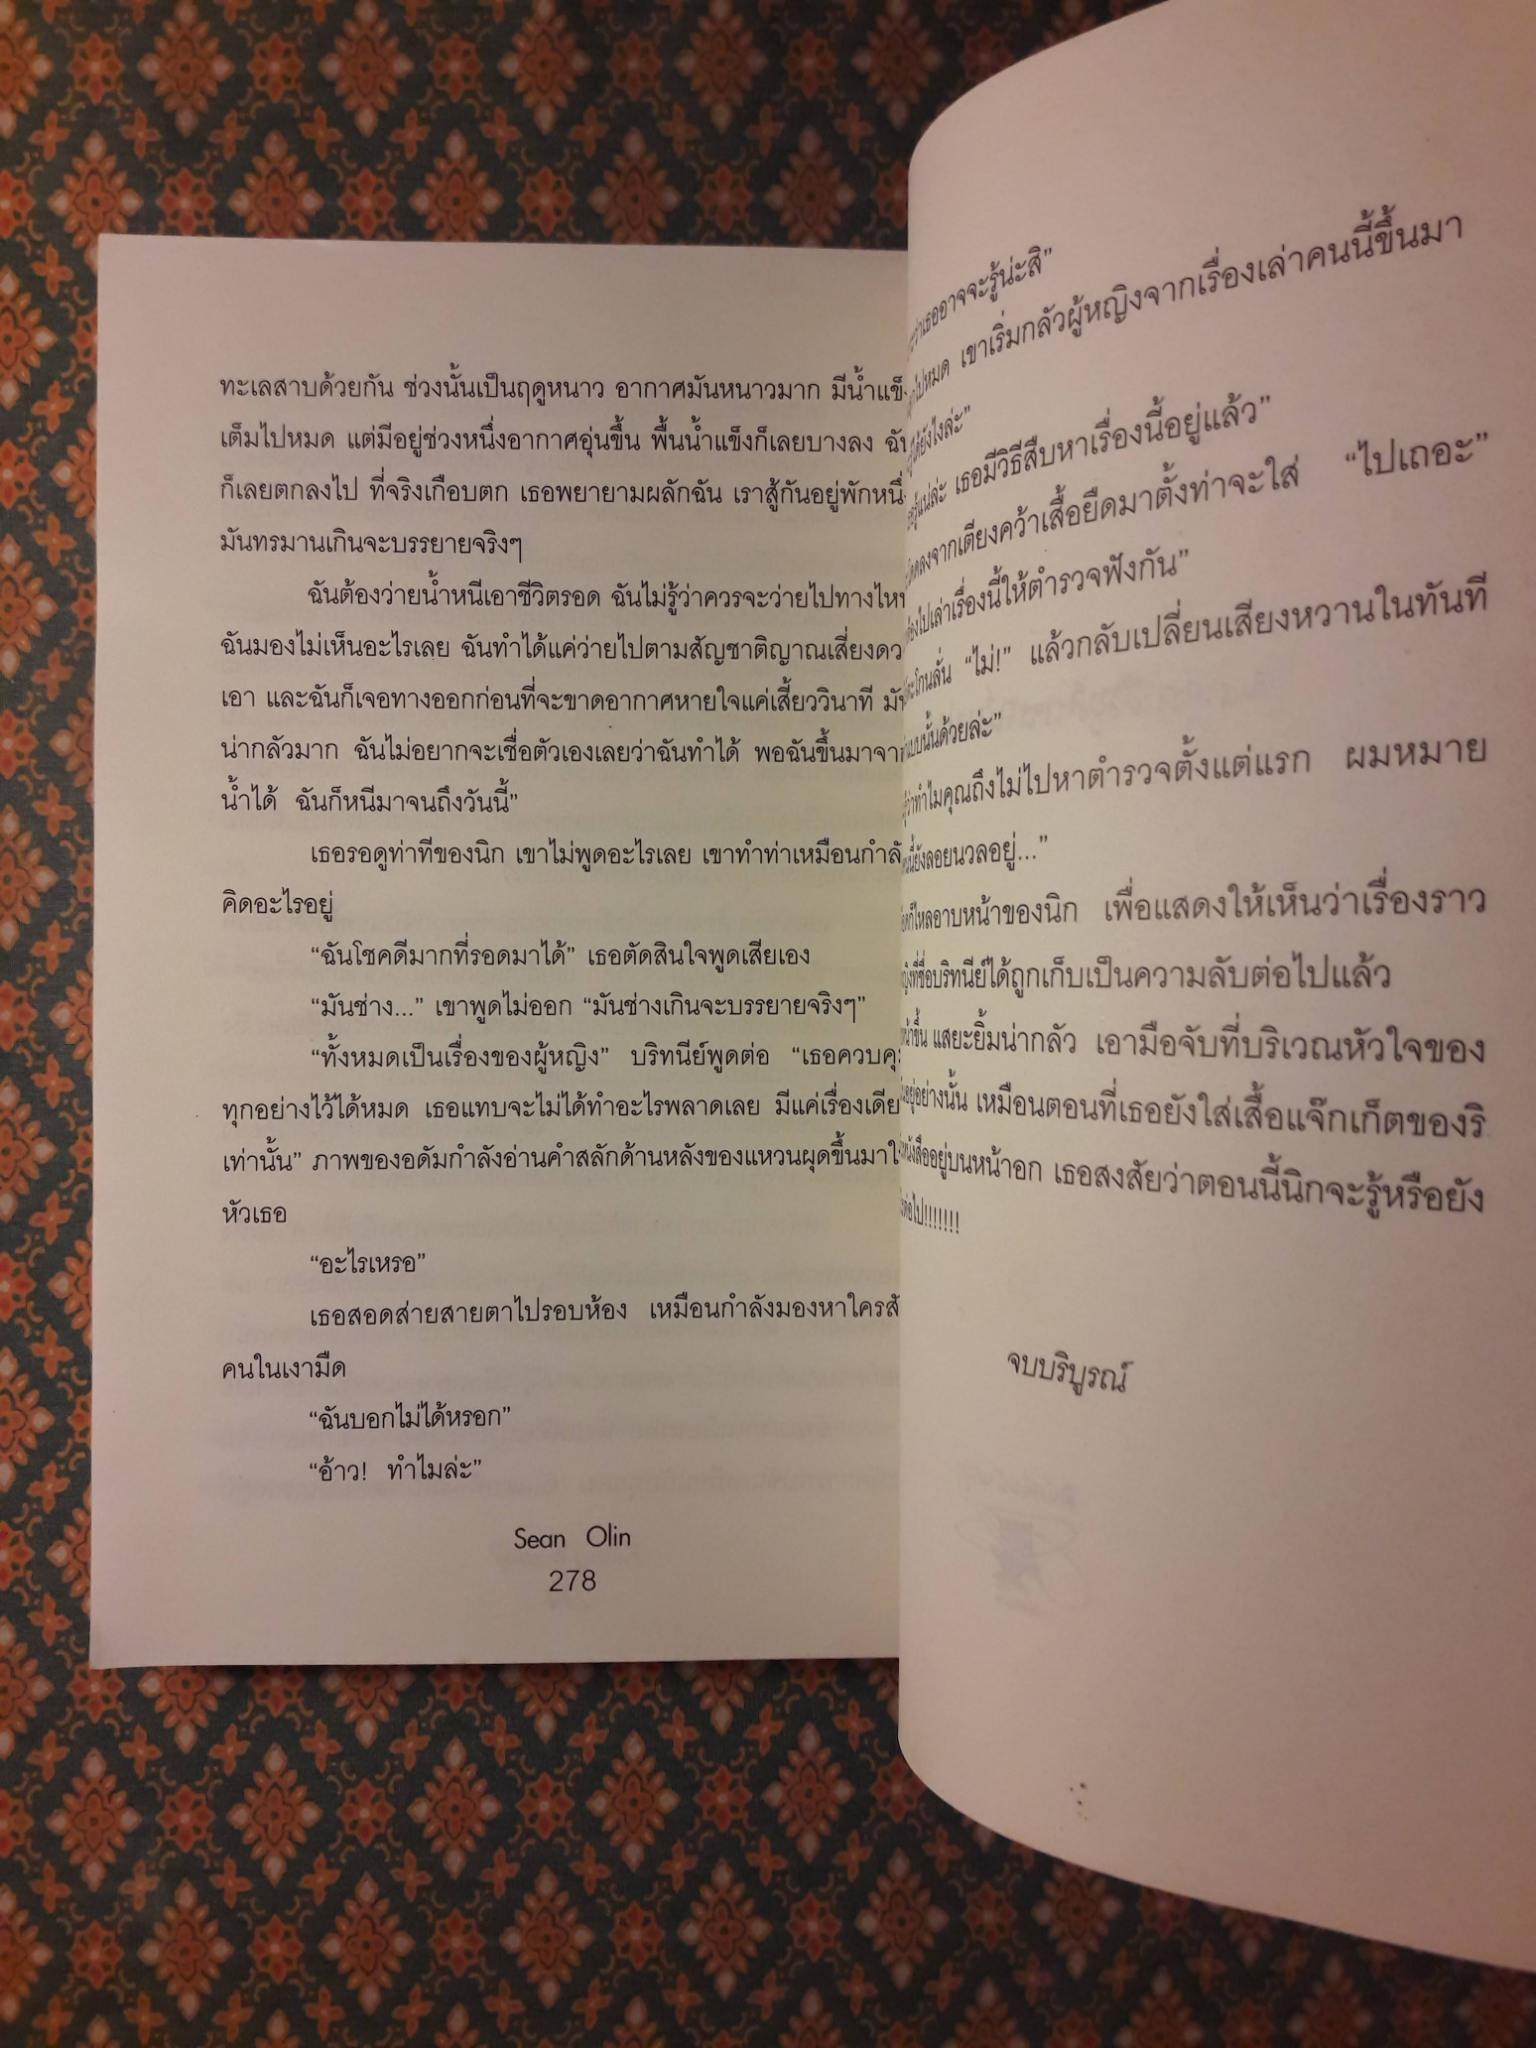 ทะเลสาบด้วยกัน ช่วงนั้นเป็นฤดูหนาว อากาศมันหนาวมาก
เต็มไปหมด แต่มีอยู่ช่วงหนึ่งอากาศอุ่นขึ้น พื้นน้ำแข็งก็เลยบางลง
ก็เลยตกลงไป ที่จริงเกือบตก เธอพยายามผลักฉัน เราสู้กันอยู่พักหนึ่ง
มันทรมานเกินจะบรรยายจริงๆ
ฉันต้องว่ายน้ำหนีเอาชีวิตรอด ฉันไม่รู้ว่าควรจะว่ายไปทางไหน
ฉันมองไม่เห็นอะไรเลย ฉันทำได้แค่ว่ายไปตามสัญชาติญาณเสี่ยงดวง
เอา และฉันก็เจอทางออกก่อนที่จะขาดอากาศหายใจแค่เสี้ยววินาที
น่ากลัวมาก ฉันไม่อยากจะเชื่อตัวเองเลยว่าฉันทำได้ พอฉันขึ้นมาจาก
น้ำได้ ฉันก็หนีมาจนถึงวันนี้”
เธอรอดูท่าทีของนิก เขาไม่พูดอะไรเลย เขาทำท่าเหมือนกำลัง
คิดอะไรอยู่
“ฉันโชคดีมากที่รอดมาได้” เธอตัดสินใจพูดเสียเอง
“มันช่าง...” เขาพูดไม่ออก “มันช่างเกินจะบรรยายจริงๆ”
“ทั้งหมดเป็นเรื่องของผู้หญิง” บริทนีย์พูดต่อ “เธอควบคุม
ทุกอย่างไว้ได้หมด เธอแทบจะไม่ได้ทำอะไรพลาดเลย มีแค่เรื่องเดีย
เท่านั้น” ภาพของอดัมกำลังอ่านคำสลักด้านหลังของแหวนผุดขึ้นมาใ
หัวเธอ
“อะไรเหรอ”
เธอสอดส่ายสายตาไปรอบห้อง เหมือนกำลังมองหาใครสั
คนในเงามืด
“ฉันบอกไม่ได้หรอก”
“อ้าว! ทำไมล่ะ”
Sean Olin
278
ว่าเธออาจจะรู้น่ะสิ”
ไปหมด เขาเริ่มกลัวผู้หญิงจากเรื่องเล่าคนนี้ขึ้นมา
ได้ยังไงล่ะ”
รู้แน่ล่ะ เธอมีวิธีสืบหาเรื่องนี้อยู่แล้ว”
ลงจากเตียงคว้าเสื้อยืดมาตั้งท่าจะใส่ “ไปเถอะ”
ต้องไปเล่าเรื่องนี้ให้ตำรวจฟังกัน”
ตะโกนลั่น “ไม่!” แล้วกลับเปลี่ยนเสียงหวานในทันที
แบบนั้นด้วยล่ะ”
ว่าทำไมคุณถึงไม่ไปหาตำรวจตั้งแต่แรก ผมหมาย
นี้ยังลอยนวลอยู่...”
ก็ไหลอาบหน้าของนิก เพื่อแสดงให้เห็นว่าเรื่องราว
ที่ชื่อบริทนีย์ได้ถูกเก็บเป็นความลับต่อไปแล้ว
หน้าขึ้น แสยะยิ้มน่ากลัว เอามือจับที่บริเวณหัวใจของ
อยู่อย่างนั้น เหมือนตอนที่เธอยังใส่เสื้อแจ๊กเก็ตของริ
หนังสืออยู่บนหน้าอก เธอสงสัยว่าตอนนี้นิกจะรู้หรือยัง
ต่อไป!!!!!!!
จบบริบูรณ์